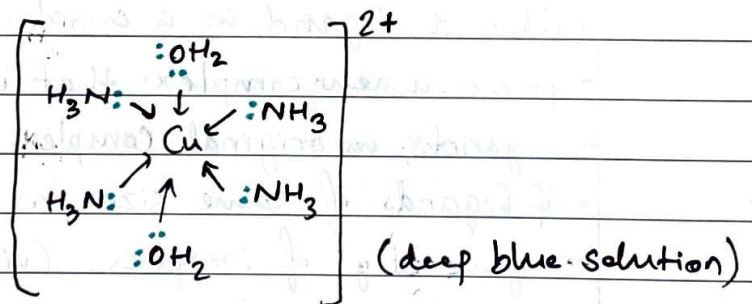 2+
:OH2
H3N: :NH3
Cu
H3N: :NH3
:OH2
(deep blue solution)